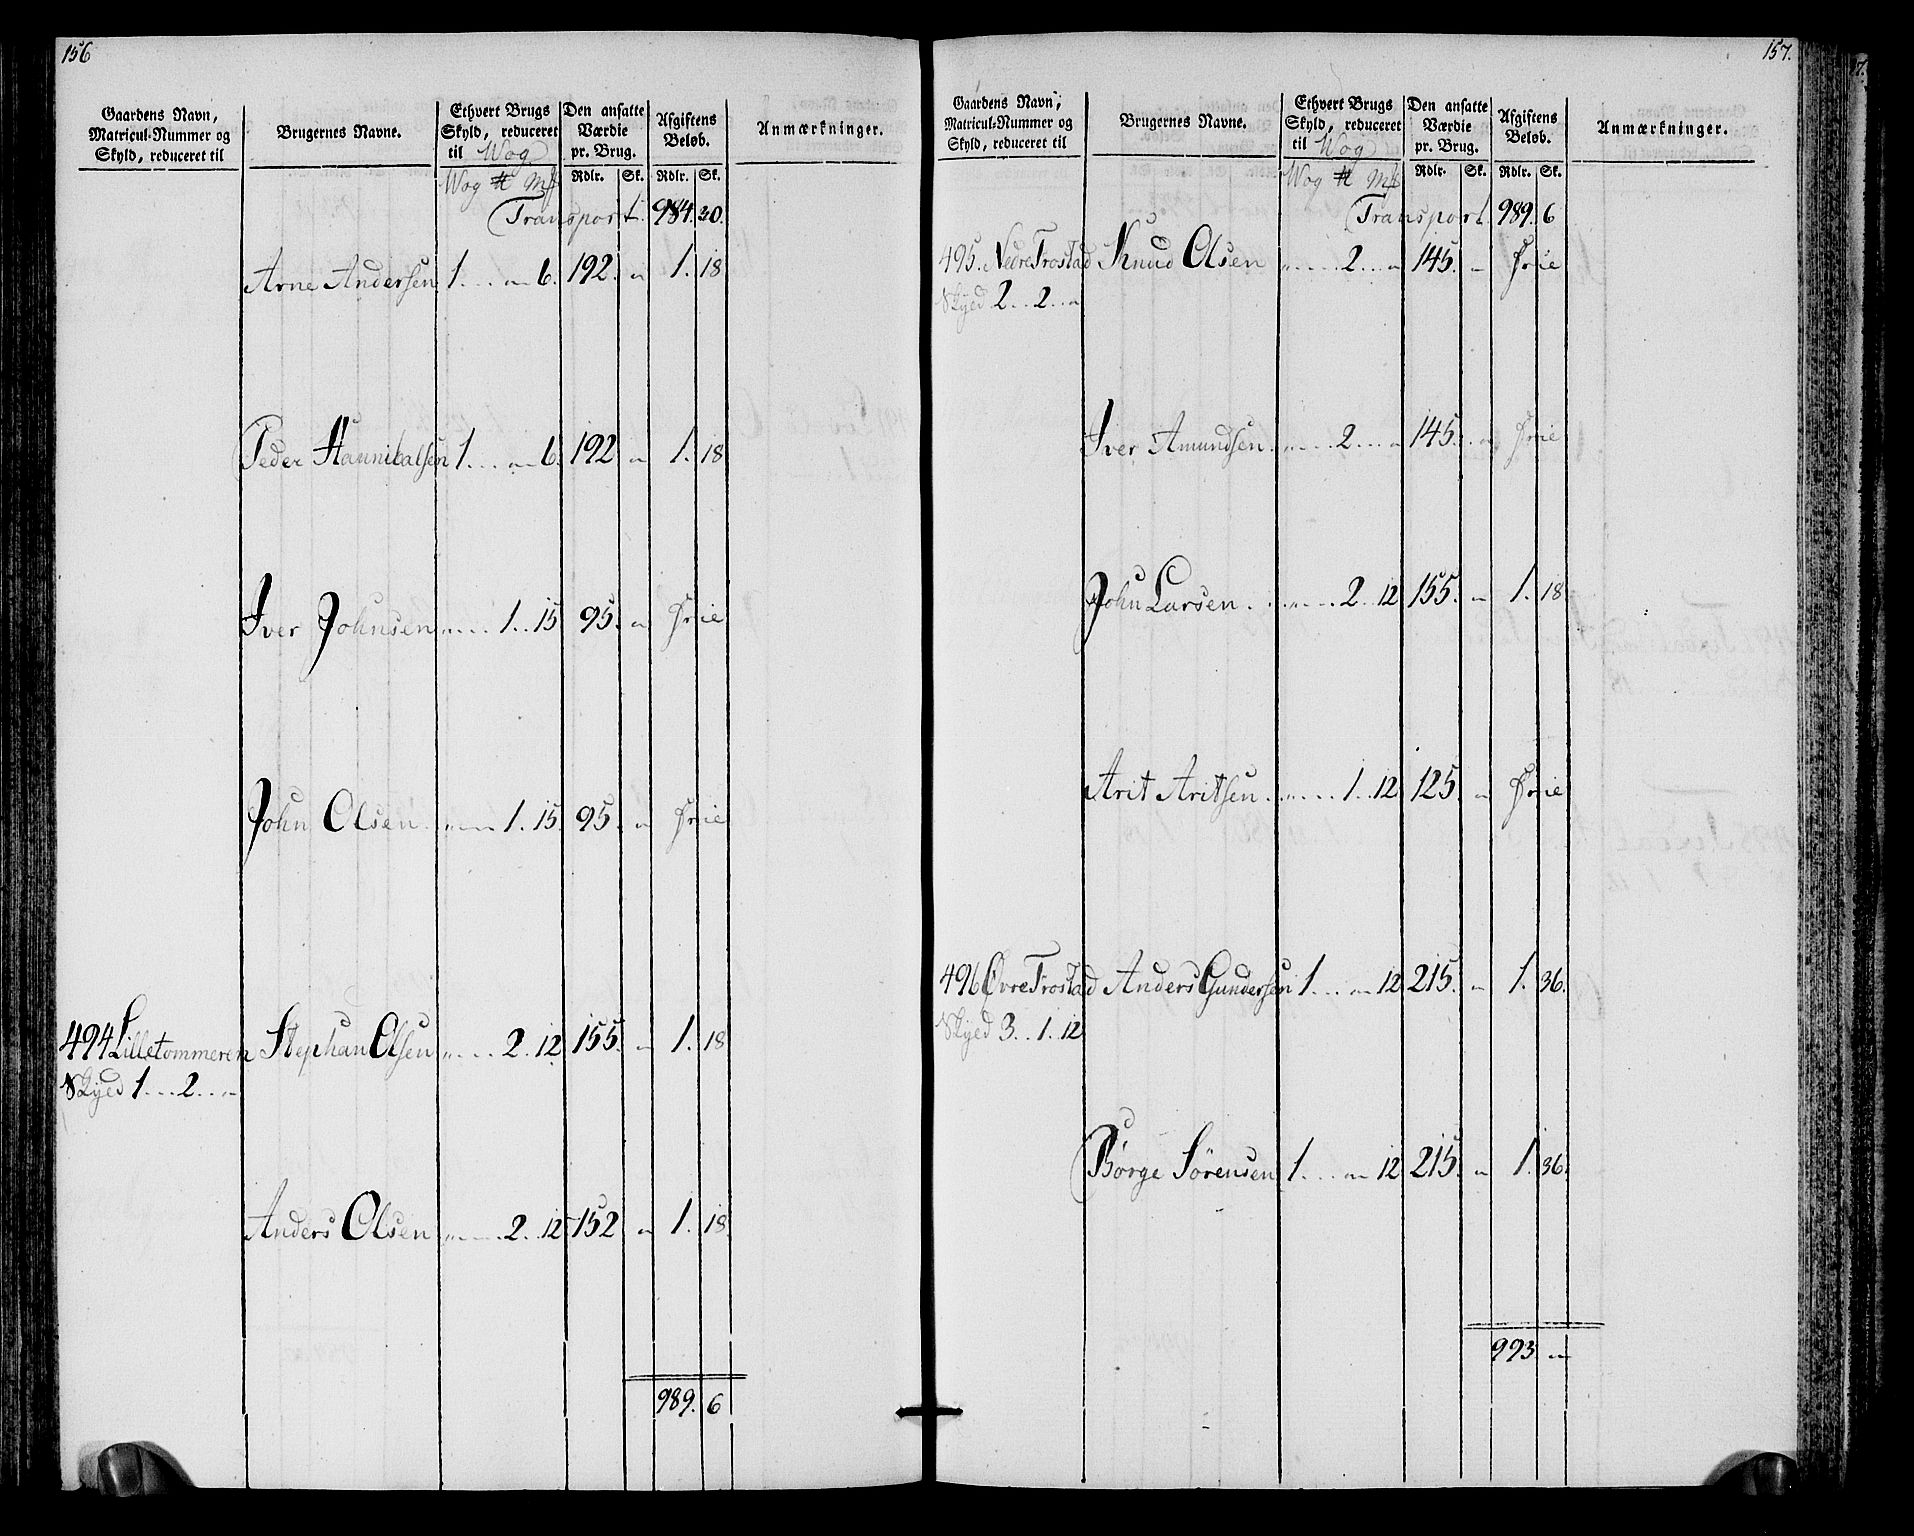 156
Gaardens Navn, Matricul-Nummer og Skyld, reduceret til
Brugernes Navne.
Ethvert Brugs Skyld, reduceret til Wog
Den ansatte Værdie pr. Brug.
Afgiftens Beløb.
Anmærkninger.
Wog ℔ Mk Rdlr. Sk. Rdlr. Sk.
Transport. 984. 30.
Arne Andersen 1. . . „ 6. 192. „ 1. 18
Peder Hannibalsen 1. . . „ 6. 192 „ 1. 18
Iver Johnsen „ . . . 1. . 15 95. „ Frie
John Olsen „ . . . 1. 15. 95. „ Frie
494 Lilletommeren Stephan Olsen „ . . . 2. 12. 155. „ 1. 18
Skyed 1 . . . 2 . . „
Anders Olsen „ . . . 2. . 12 152 „ 1. 18.
989. 6
157.
Gaardens Navn, Matricul-Nummer og Skyld, reduceret til
Brugernes Navne.
Ethvert Brugs Skyld, reduceret til Wog
Den ansatte Værdie pr. Brug.
Afgiftens Beløb.
Anmærkninger.
Wog ℔ Mk Rdlr. Sk. Rdlr. Sk.
Transport 989. 6
495. Nedre Trostad Knud Olsen „ . . . 2 . . „ 145. „ Frie
Skyed 2 . . 2 . . „
Iver Amundsen. „ . . . 2 . . „ 145. „ Frie
John Larsen. „ . . . 2 . . 12 155. „ 1. 18.
Arit Aritsen. „ . . . 1. . 12 125. „ Frie
496 Øvre Trostad Anders Gundersen 1. . . „ 12 215. „ 1. 36.
Skyed 3. . 1. 12
Børge Sørensen 1. . . „ 12 215. „ 1. 36.
993 „